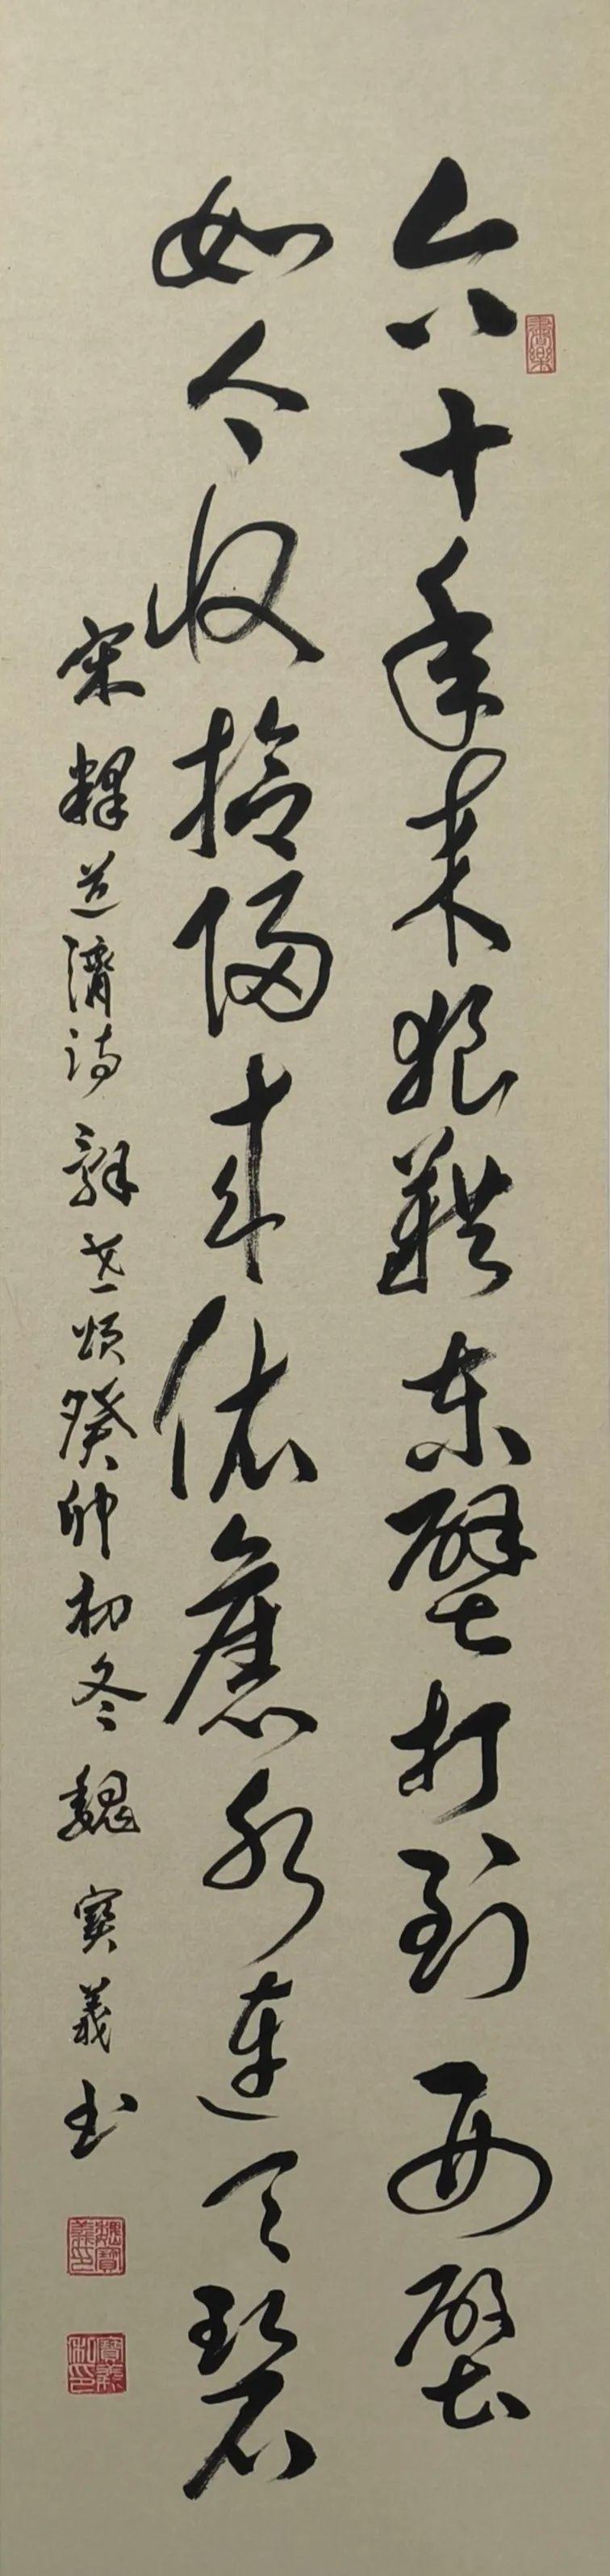 六十年来狼藉东壁打到西壁
如今收拾归来依旧水连天碧
宋释道济诗辞世颂癸卯初冬魏宝义书